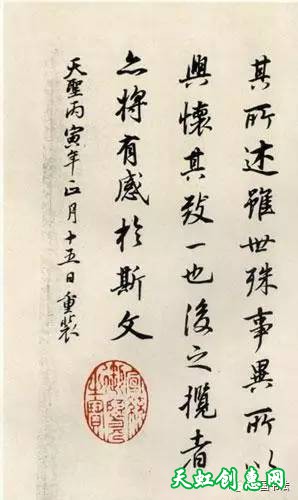 其所述雖世殊事異所以
興懷其致一也後之攬者
亦將有感於斯文
天聖丙寅年正月十五日重裝
宣統御覽之寶
天虹创意网
书法